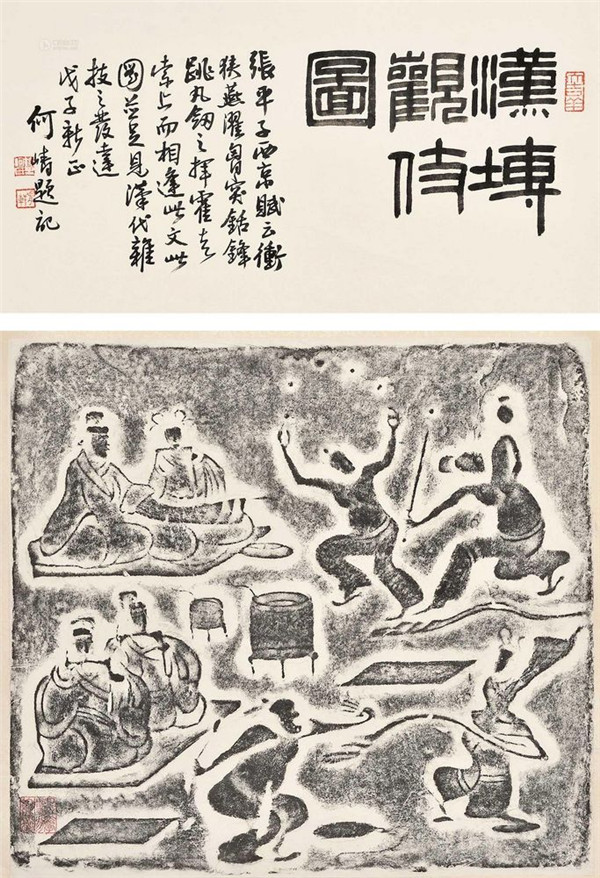 漢塼
觀伎
圖
張平子西京賦云衝
狹燕濯胷突銛鋒
跳丸劍之揮霍走
索上而相逢此文此
圖並足見漢代雜
技之發達
戊子新正
何崝題記